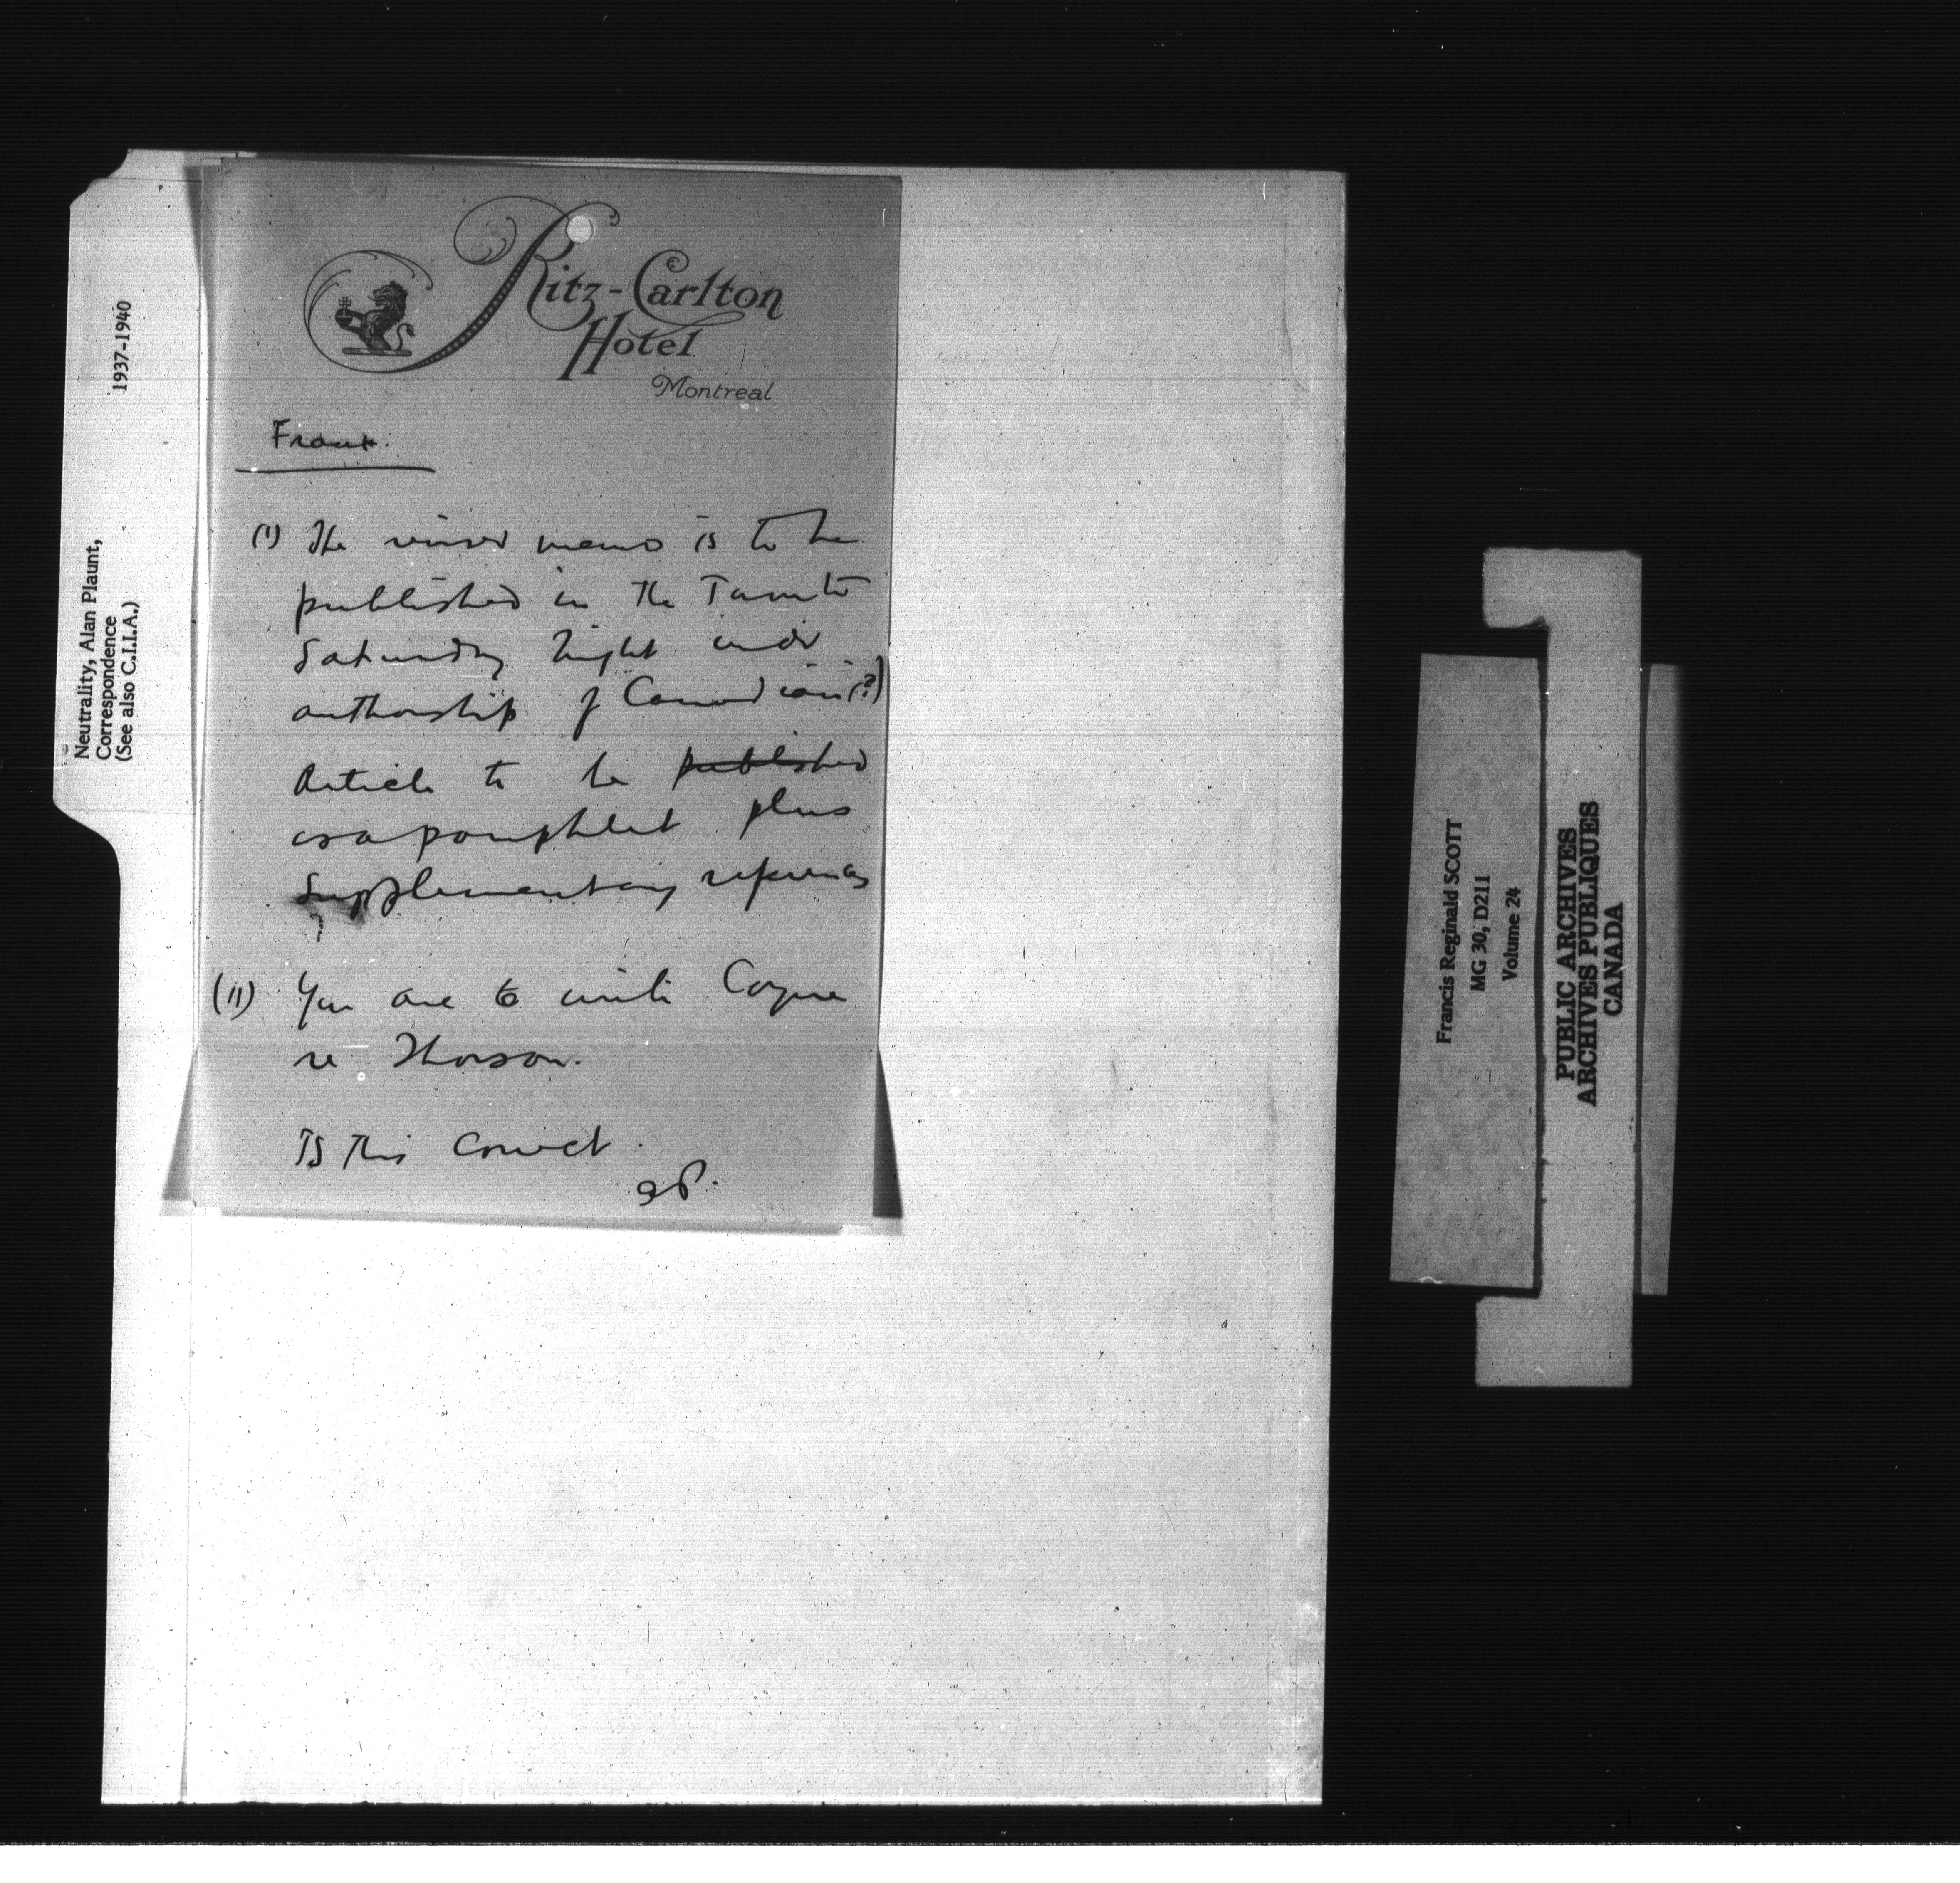 Neutrality, Alan Plaunt,
Correspondence
(See also C.I.I.A.)
1937-1940
Ritz-Carlton
Hotel
Montreal
Frank.
(1) The revised memo is to be
published in the Toronto
Saturday Night under
authorship of Canadian (?)
Article to be published
as a pamphlet plus
supplementary references
(11) You are to write Coyne
re Thorson.
Is this correct.
AP.
Francis Reginald SCOTT
MG 30, D211
Volume 24
PUBLIC ARCHIVES
ARCHIVES PUBLIQUES
CANADA